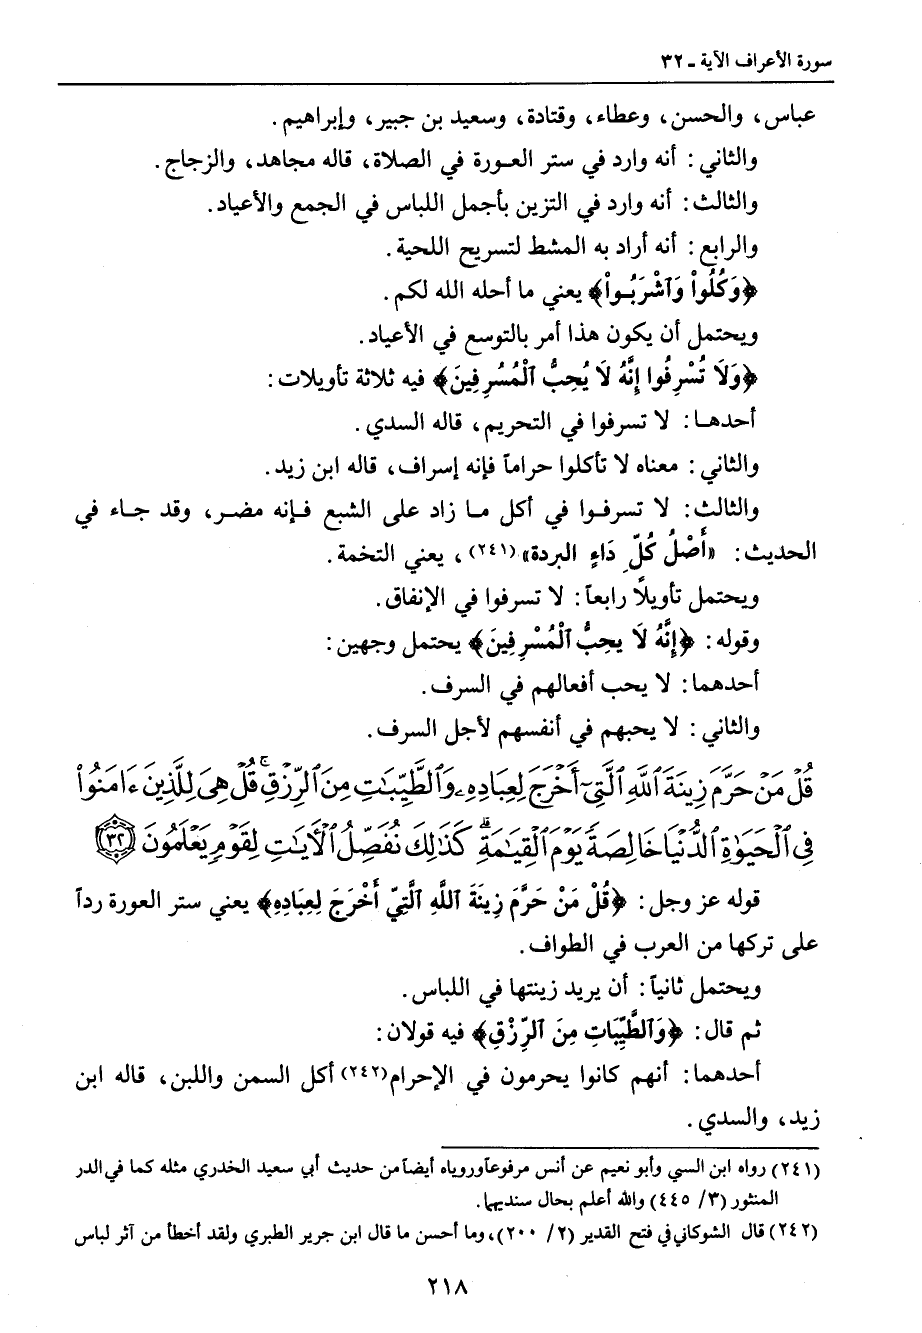 سورة الأعراف الآية ـ ٣٢
عباس، والحسن، وعطاء، وقتادة، وسعيد بن جبير، وإبراهيم.
والثاني: أنه وارد في ستر العورة في الصلاة، قاله مجاهد، والزجاج.
والثالث: أنه وارد في التزين بأجمل اللباس في الجمع والأعياد.
والرابع: أنه أراد به المشط لتسريح اللحية.
﴿وَكُلُواْ وَٱشْرَبُواْ﴾ يعني ما أحله الله لكم.
ويحتمل أن يكون هذا أمر بالتوسع في الأعياد.
﴿وَلَا تُسْرِفُوا إِنَّهُ لَا يُحِبُّ ٱلْمُسْرِفِينَ﴾ فيه ثلاثة تأويلات:
أحدهما: لا تسرفوا في التحريم، قاله السدي.
والثاني: معناه لا تأكلوا حراماً فإنه إسراف، قاله ابن زيد.
والثالث: لا تسرفوا في أكل ما زاد على الشبع فإنه مضر، وقد جاء في
الحديث: «أَصْلُ كُلِّ دَاءٍ البردة»(٢٤١)، يعني التخمة.
ويحتمل تأويلاً رابعاً: لا تسرفوا في الإنفاق.
وقوله: ﴿إِنَّهُ لَا يحِبُّ ٱلْمُسْرِفِينَ﴾ يحتمل وجهين:
أحدهما: لا يحب أفعالهم في السرف.
والثاني: لا يحبهم في أنفسهم لأجل السرف.
قُلْ مَنْ حَرَّمَ زِينَةَ ٱللَّهِ ٱلَّتِىٓ أَخْرَجَ لِعِبَادِهِۦ وَٱلطَّيِّبَٰتِ مِنَ ٱلرِّزْقِۚ قُلْ هِىَ لِلَّذِينَ ءَامَنُواْ
فِى ٱلْحَيَوٰةِ ٱلدُّنْيَا خَالِصَةً يَوْمَ ٱلْقِيَٰمَةِۗ كَذَٰلِكَ نُفَصِّلُ ٱلْأَيَٰتِ لِقَوْمٍ يَعْلَمُونَ ٣٢
قوله عز وجل: ﴿قُلْ مَنْ حَرَّمَ زِينَةَ ٱللَّهِ ٱلَّتِيٓ أَخْرَجَ لِعِبَادِهِ﴾ يعني ستر العورة رداً
على تركها من العرب في الطواف.
ويحتمل ثانياً: أن يريد زينتها في اللباس.
ثم قال: ﴿وَٱلطَّيِّبَاتِ مِنَ ٱلرِّزْقِ﴾ فيه قولان:
أحدهما: أنهم كانوا يحرمون في الإحرام(٢٤٢) أكل السمن واللبن، قاله ابن
زيد، والسدي.
(٢٤١) رواه ابن السني وأبو نعيم عن أنس مرفوعاً ورویاه أيضاً من حديث أبي سعيد الخدري مثله كما في الدر
المنثور (٣/ ٤٤٥) والله أعلم بحال سنديهما.
(٢٤٢) قال الشوكاني في فتح القدير (٢/ ٢٠٠)، وما أحسن ما قال ابن جرير الطبري ولقد أخطأ من آثر لباس
٢١٨